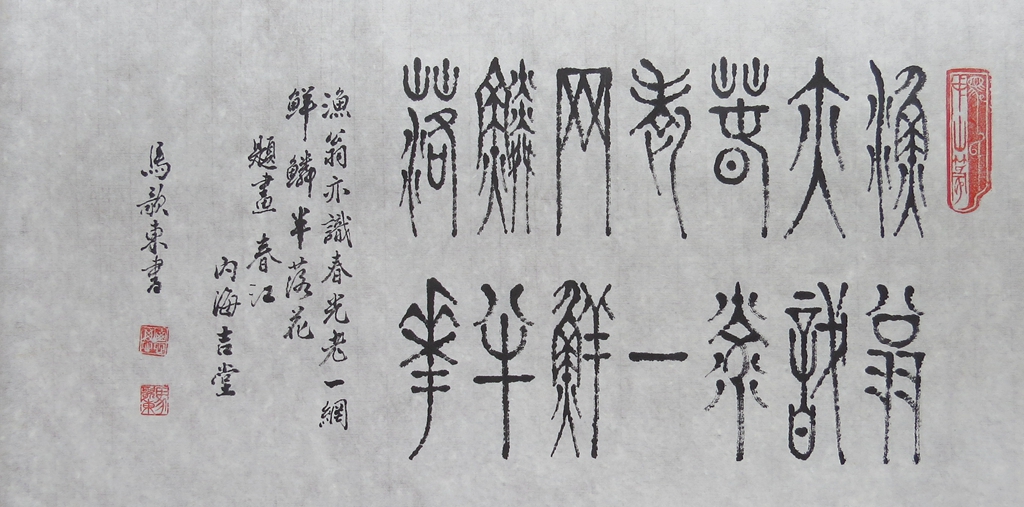 漁翁
亦識
春光
老一
网鮮
鱗半
落華
漁翁亦識春光老一網
鮮鱗半落花
題畫 春江
内海吉堂
馬歌東書